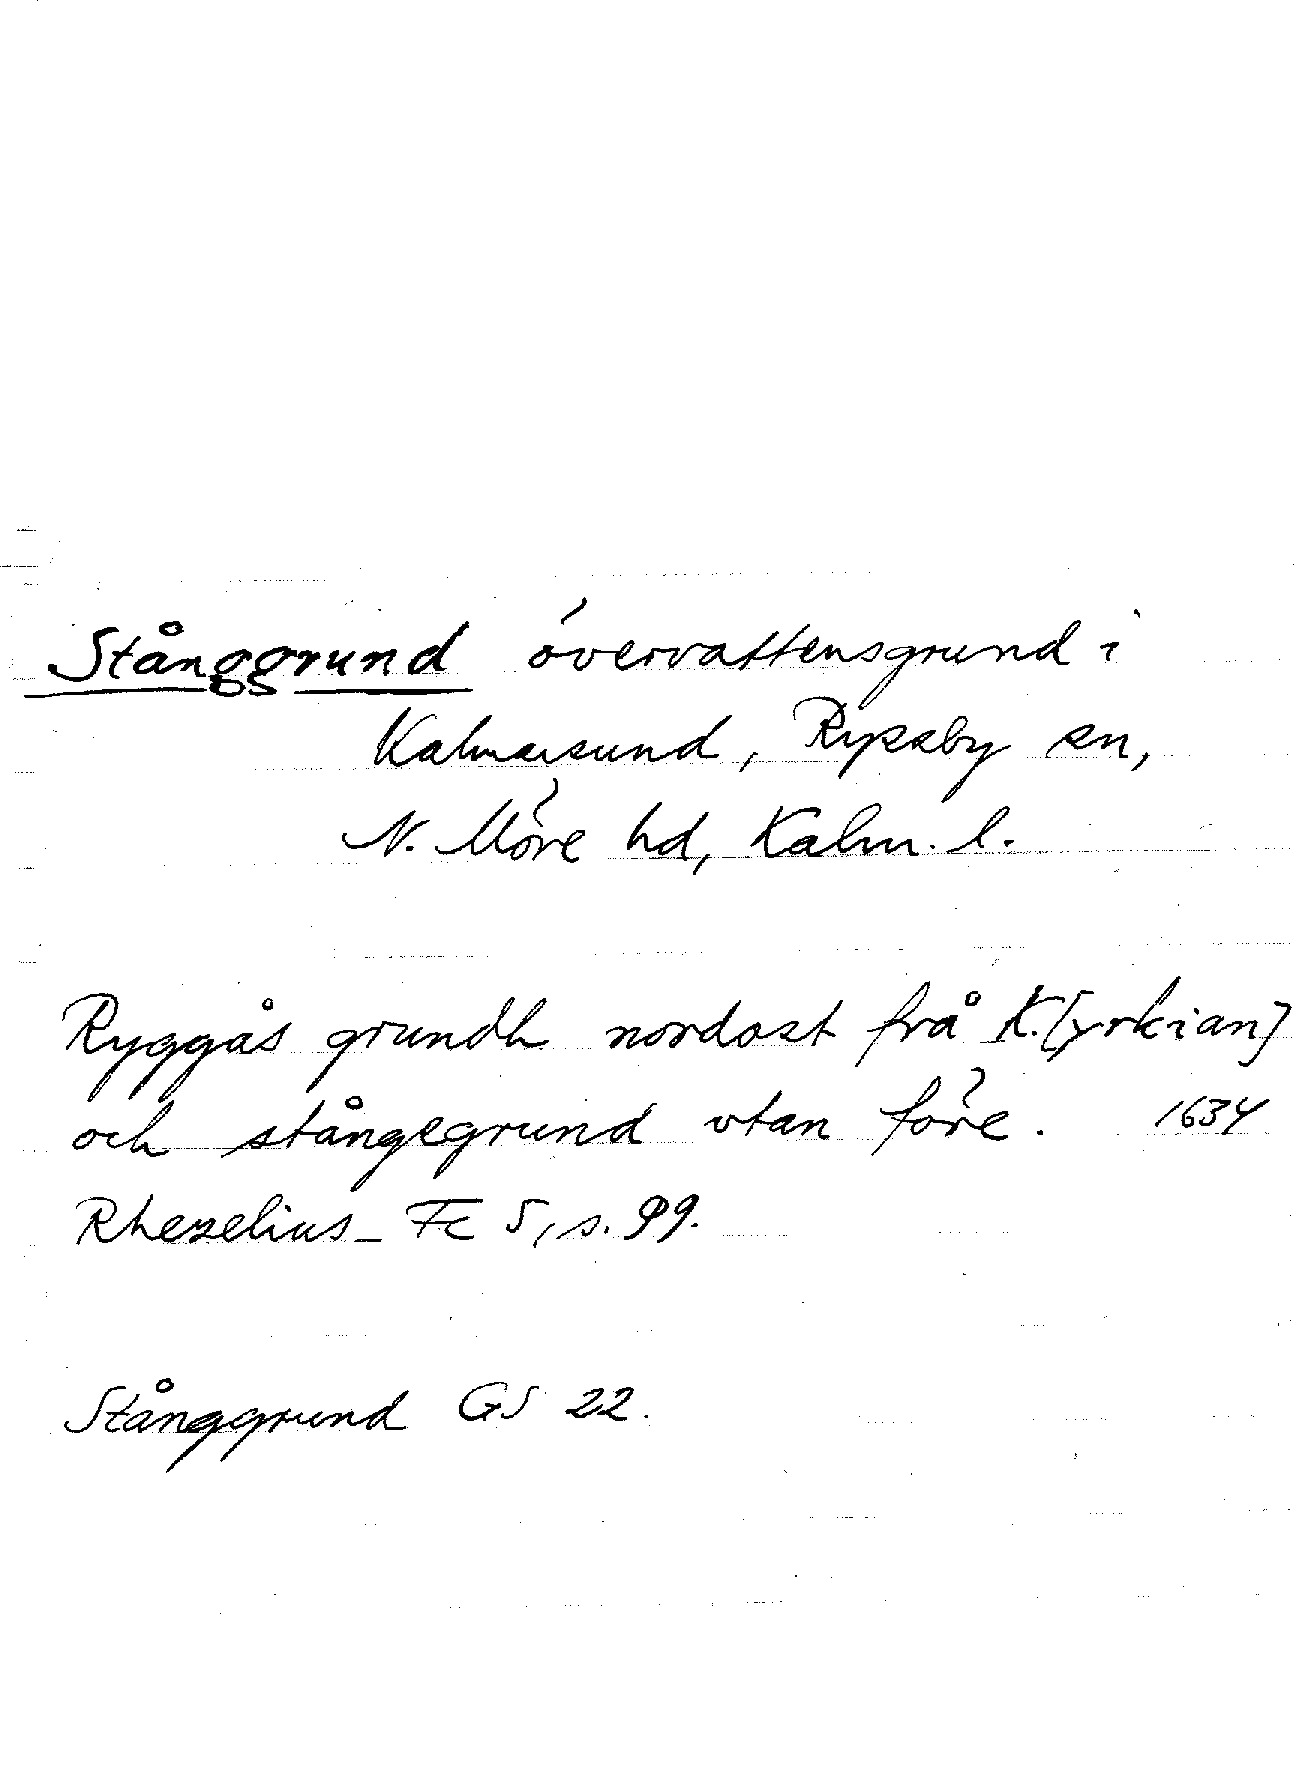 Stånggrund övervattensgrund i
Kalmarsund, Ryssby sn,
N. Möre hd, Kalm. l.
Ryggås grundh nordost frå K.[yrkian]
och stångegrund vtan före. 1634
Rhezelius - Fc 5, s. 99.
Stånggrund GS 22.